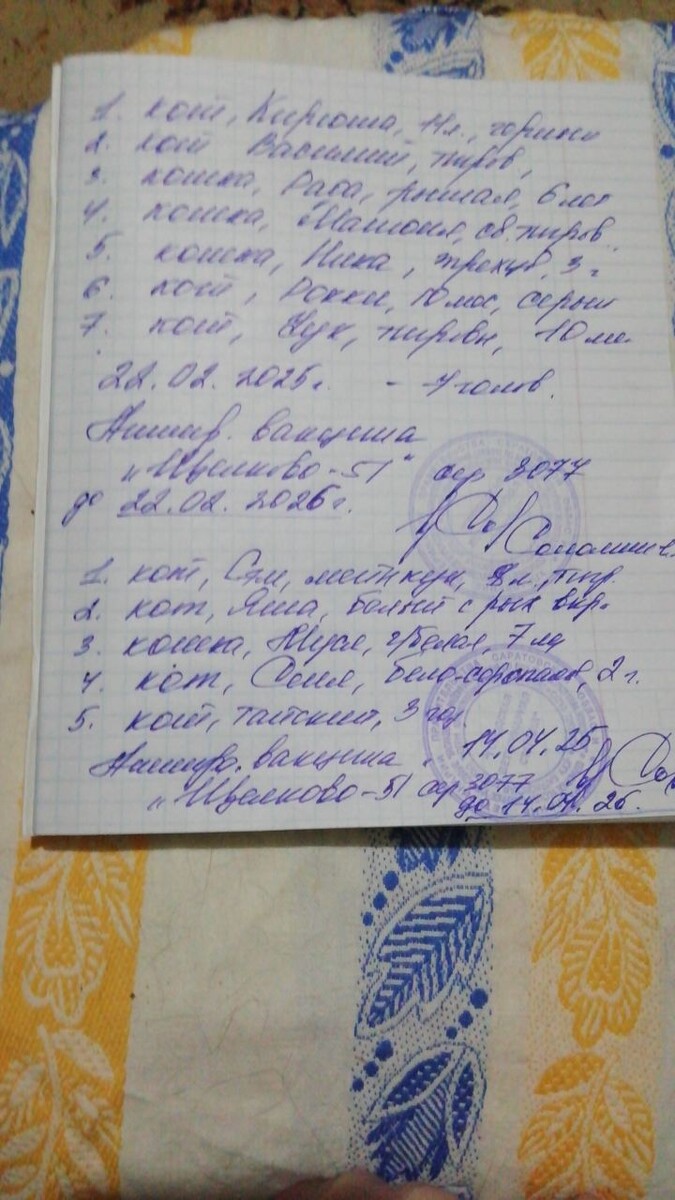 1. кот, Кирюша, 11л.,
2. кот Василий, тигров,
3. кошка, Рада, рыжая, 6 лет
4. кошка, Матюня, св. тигров
5. кошка, Ника, трехцв, 3 г
6. кот, Рокки, 10 мес, серый
7. кот, Чук, тигровы, 10 ме.
22.02.2025г. - 7 голов.
Антир. вакцина
"Щелково-51" сер 3077
до 22.02.2026г.
1. кот, Сэм, мейнкун, 8 л., тигр.
2. кот, Яша, белый с рыж вкр.
3. кошка, Муся, г/белая, 7 л
4. кот, Соня, бело-, 2 г.
5. кот, тайский, 3 год
Антираб. вакцина 14.04.25
"Щелково-51 сер 3077
до 14.04.26.